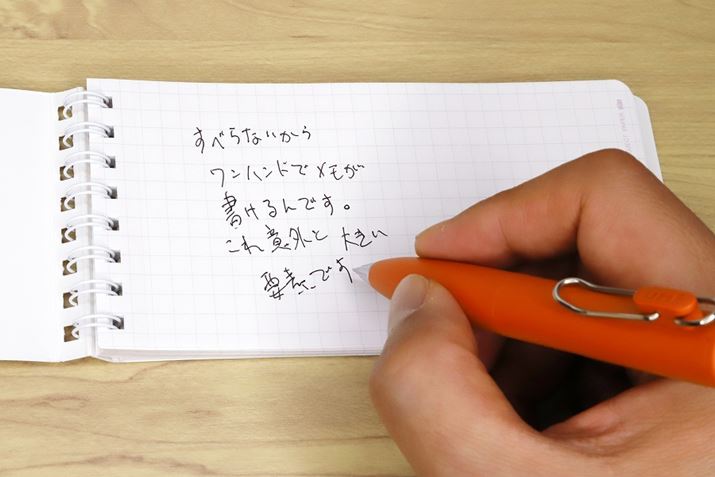 すべらないから
ワンハンドでメモが
書けるんです。
これ意外と大きい
要素です